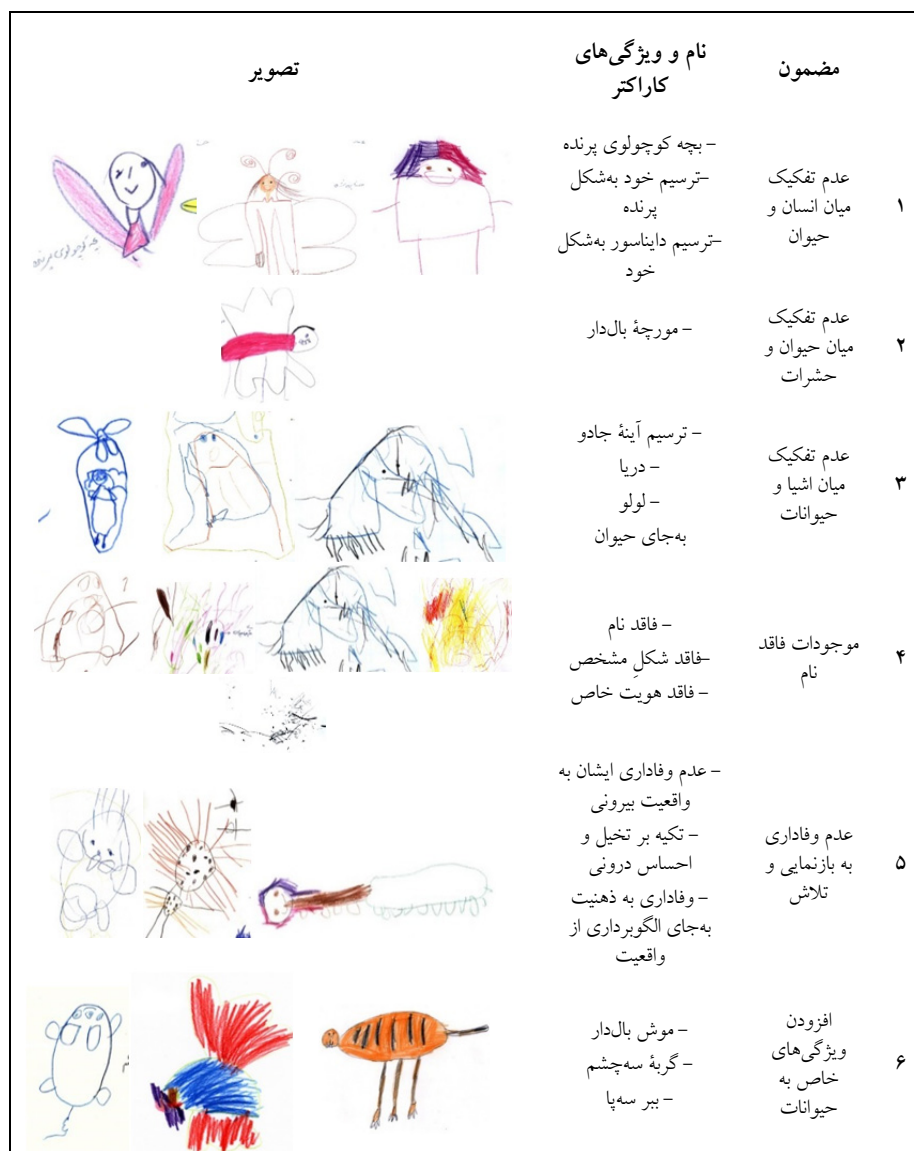 مضمون
نام و ویژگی‌های
کاراکتر
تصویر
۱
عدم تفکیک
میان انسان و
حیوان
– بچه کوچولوی پرنده
–ترسیم خود به‌شکل
پرنده
–ترسیم دایناسور به‌شکل
خود
بچه کوچولوی پرنده
۲
عدم تفکیک
میان حیوان و
حشرات
– مورچهٔ بال‌دار
۳
عدم تفکیک
میان اشیا و
حیوانات
– ترسیم آینهٔ جادو
– دریا
– لولو
به‌جای حیوان
۴
موجودات فاقد
نام
– فاقد نام
–فاقد شکلِ مشخص
– فاقد هویت خاص
۵
عدم وفاداری
به بازنمایی و
تلاش
– عدم وفاداری ایشان به
واقعیت بیرونی
– تکیه بر تخیل و
احساس درونی
– وفاداری به ذهنیت
به‌جای الگوبرداری از
واقعیت
۶
افزودن
ویژگی‌های
خاص به
حیوانات
– موش بال‌دار
– گربهٔ سه‌چشم
– ببر سه‌پا